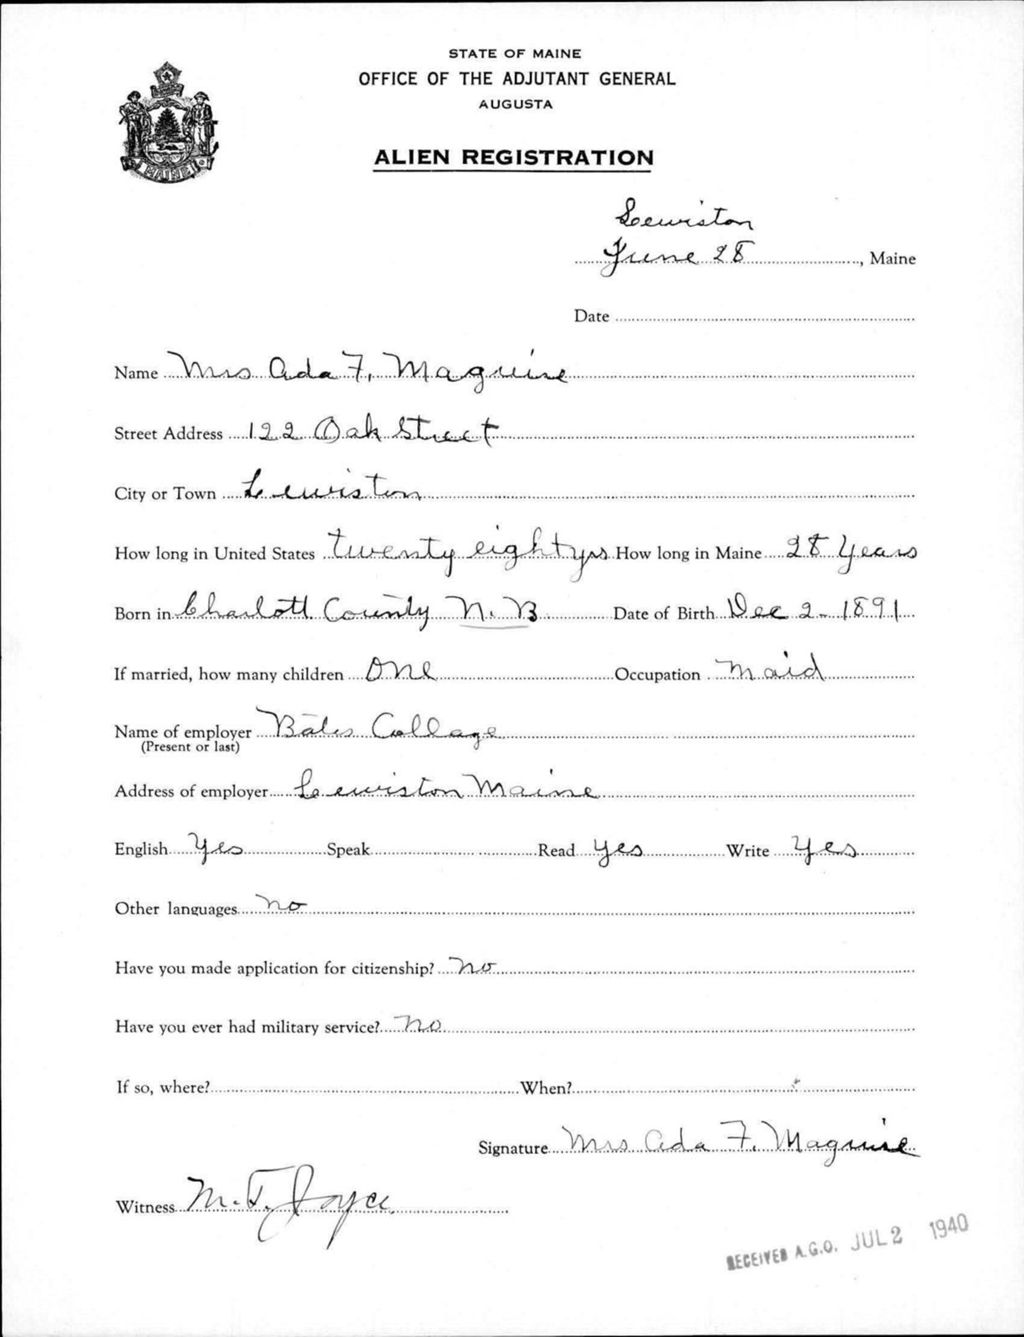 STATE OF MAINE
OFFICE OF THE ADJUTANT GENERAL
AUGUSTA
ALIEN REGISTRATION
MAINE
Lewiston
June 28, Maine
Date
Name Mrs Ada F. Maguire
Street Address 122 Oak Street
City or Town Lewiston
How long in United States twenty eight yrs How long in Maine 28 Years
Born in Charlott County N.B Date of Birth Dec 2-1891
If married, how many children One Occupation Maid
Name of employer Bates Collage
(Present or last)
Address of employer Lewiston Maine
English Yes Speak Read Yes Write Yes
Other languages no
Have you made application for citizenship? no
Have you ever had military service? no
If so, where? When?
Signature Mrs Ada F. Maguire
Witness M. T. Joyce
RECEIVED A.G.O. JUL 2 1940